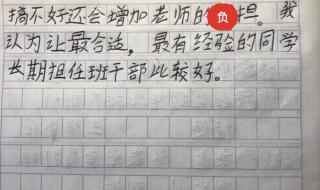 搞不好还会增加老师的负担。我
认为让最合适，最有经验的同学
长期担任班干部比较好。